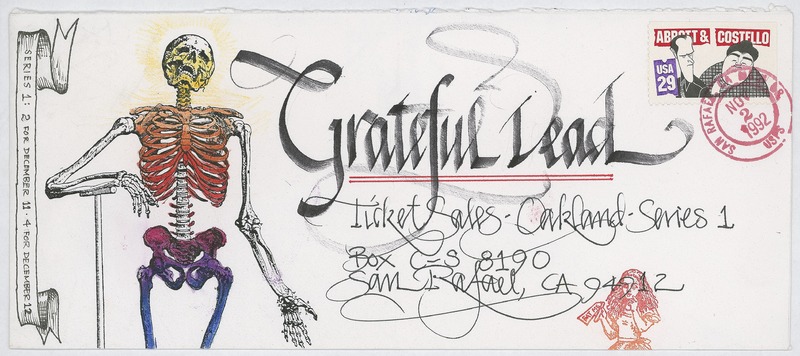 SERIES 1: 2 FOR DECEMBER 11 · 4 FOR DECEMBER 12
Grateful Dead
Ticket Sales - Oakland - Series 1
Box C-S 8190
San Rafael, CA 94912
ABBOTT & COSTELLO
USA
29
SAN RAFAEL CA
NOV
2
1992
USPS